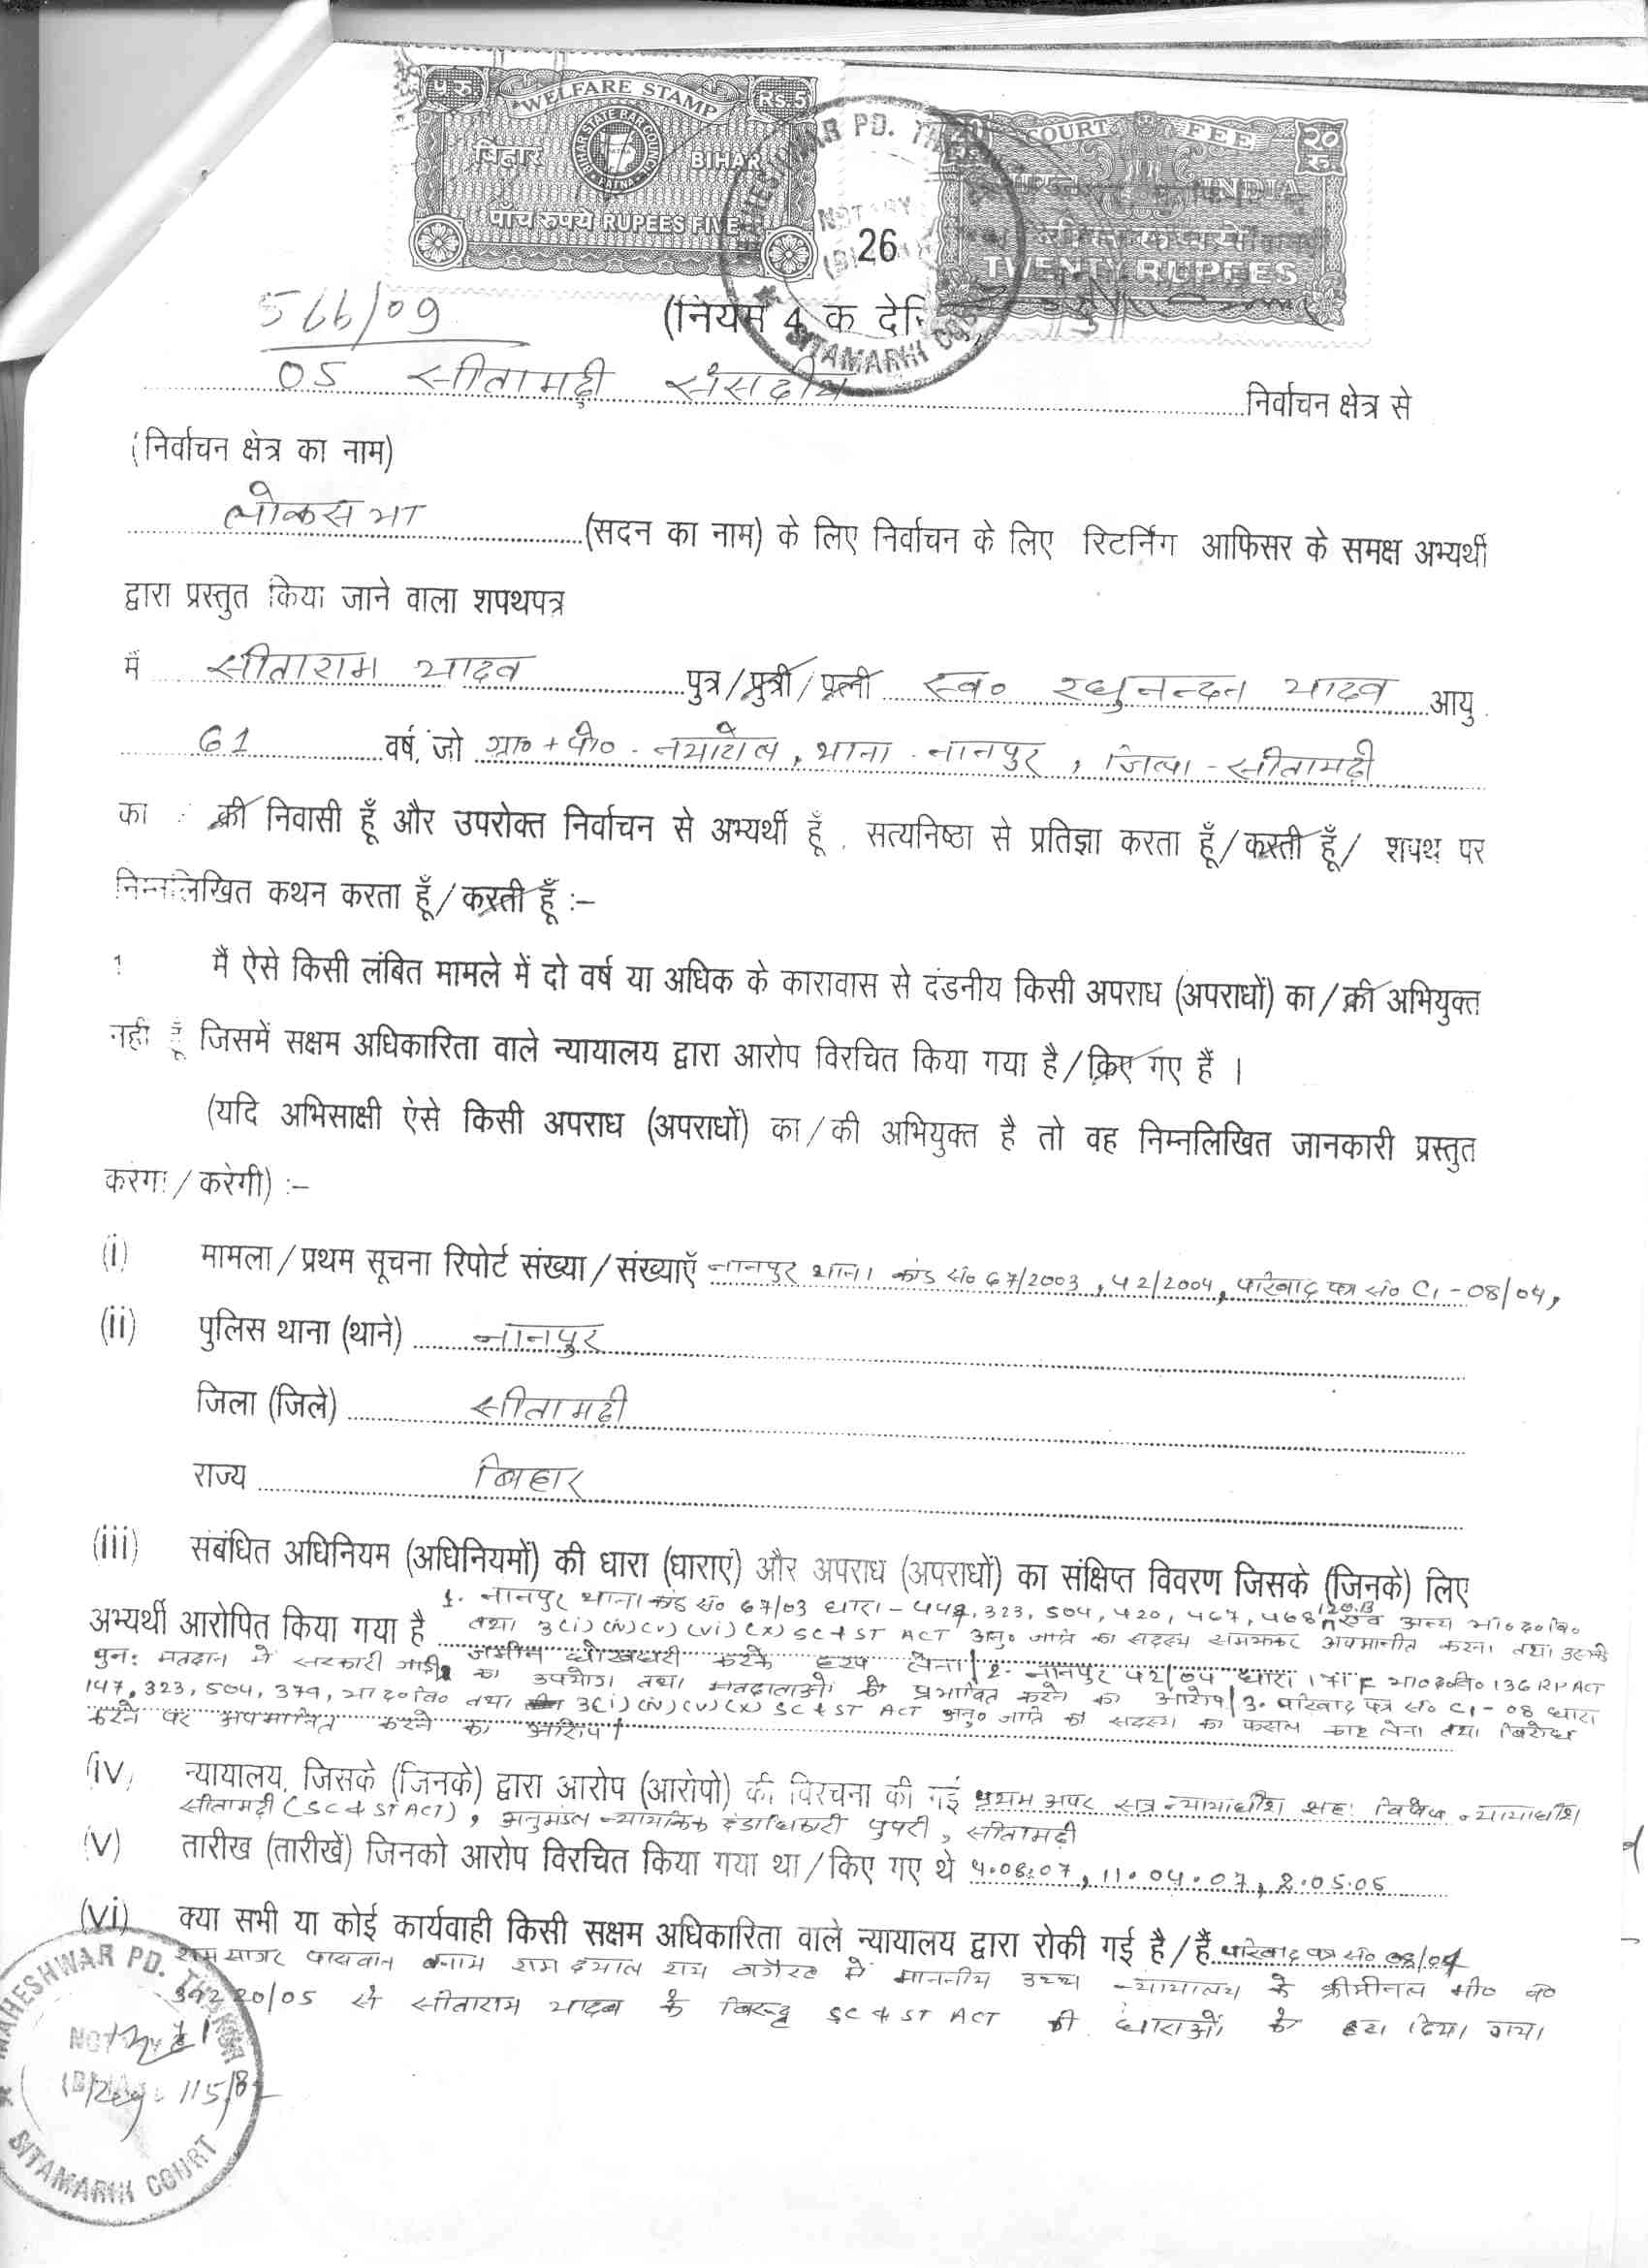 ५ रु WELFARE STAMP Rs. 5
बिहार BIHAR STATE BAR COUNCIL PATNA BIHAR
पाँच रुपये RUPEES FIVE
COURT FEE २० रु
INDIA
TWENTY RUPEES
MAHESHWAR PD. THAKUR
NOTARY
SITAMARHI COURT
26
(नियम 4 क
05 सीतामढ़ी संसदीय निर्वाचन क्षेत्र से
(निर्वाचन क्षेत्र का नाम)
लोकसभा (सदन का नाम) के लिए निर्वाचन के लिए रिटर्निंग आफिसर के समक्ष अभ्यर्थी
द्वारा प्रस्तुत किया जाने वाला शपथपत्र
मैं सीताराम यादव पुत्र/पुत्री/पत्नी स्व० रघुनन्दन यादव आयु
61 वर्ष, जो ग्रा०+पो०-नयाटोल, थाना-नानपुर, जिला-सीतामढ़ी
का की निवासी हूँ और उपरोक्त निर्वाचन से अभ्यर्थी हूँ, सत्यनिष्ठा से प्रतिज्ञा करता हूँ/करती हूँ/ शपथ पर
निम्नलिखित कथन करता हूँ/करती हूँ :-
1 मैं ऐसे किसी लंबित मामले में दो वर्ष या अधिक के कारावास से दंडनीय किसी अपराध (अपराधों) का/की अभियुक्त
नहीं हूँ जिसमें सक्षम अधिकारिता वाले न्यायालय द्वारा आरोप विरचित किया गया है/किए गए हैं ।
(यदि अभिसाक्षी ऐसे किसी अपराध (अपराधों) का/की अभियुक्त है तो वह निम्नलिखित जानकारी प्रस्तुत
करेगा/करेगी) :-
(i) मामला/प्रथम सूचना रिपोर्ट संख्या/संख्याएँ नानपुर थाना कांड सं० 67/2003, 42/2004, परिवाद पत्र सं० C1-08/04,
(ii) पुलिस थाना (थाने) नानपुर
जिला (जिले) सीतामढ़ी
राज्य बिहार
(iii) संबंधित अधिनियम (अधिनियमों) की धारा (धाराएं) और अपराध (अपराधों) का संक्षिप्त विवरण जिसके (जिनके) लिए
अभ्यर्थी आरोपित किया गया है 1. नानपुर थाना कांड सं० 67/03 धारा-448, 323, 504, 420, 467, 468, 120B एवं अन्य भा०द०वि०
तथा 3(i)(iv)(v)(vi)(x) SC & ST ACT अनु० जाति का सदस्य समझकर अपमानीत करना तथा उसकी
जमीन धोखधारी करके हड़प लेना। 2. नानपुर 42/04 धारा 171F भा०द०वि० 136 RP ACT
पुन: मतदान में सरकारी गाड़ी का उपयोग तथा मतदाताओं को प्रभावित करने का आरोप। 3. परिवाद पत्र सं० C1-08 धारा
147, 323, 504, 379, भा०द०वि० तथा 3(i)(iv)(v)(x) SC & ST ACT अनु० जाति का सदस्य का फसल काट लेना तथा विरोध
करने पर अपमानित करने का आरोप।
(iv) न्यायालय, जिसके (जिनके) द्वारा आरोप (आरोपो) की विरचना की गई प्रथम अपर सत्र न्यायाधीश सह विशेष न्यायाधीश
सीतामढ़ी (SC & ST ACT), अनुमंडल न्यायिक दंडाधिकारी पुपरी, सीतामढ़ी
(v) तारीख (तारीखें) जिनको आरोप विरचित किया गया था/किए गए थे 4.08.07, 11.04.07, 2.05.05
(vi) क्या सभी या कोई कार्यवाही किसी सक्षम अधिकारिता वाले न्यायालय द्वारा रोकी गई है/हैं परिवाद पत्र सं० 08/04
राम सागर पासवान बनाम राम दयाल राय वगैरह में माननीय उच्च न्यायालय के क्रीमीनल मी० न०
34220/05 से सीताराम यादव के विरुद्ध SC & ST ACT की धाराओं को हटा दिया गया
MAHESHWAR PD. THAKUR
NOTARY
SITAMARHI COURT